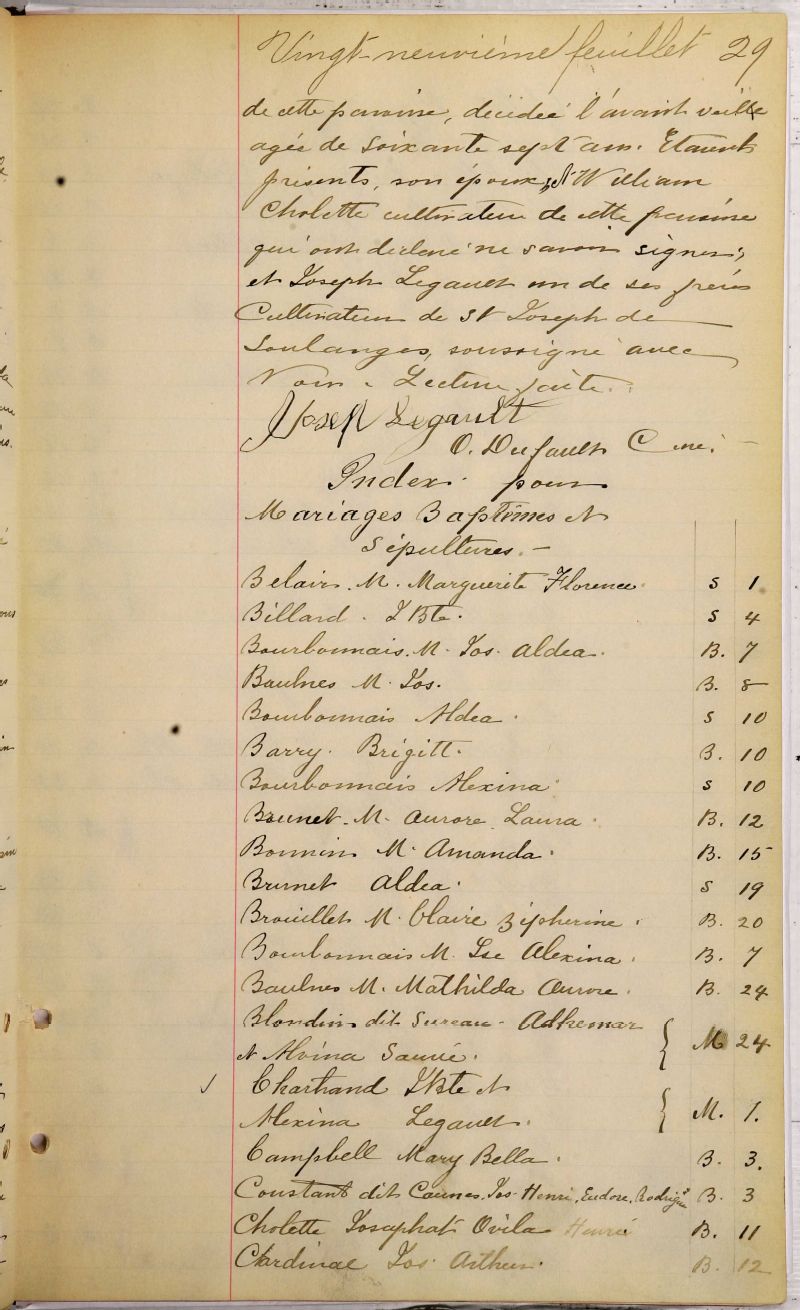 Vingt-neuvième feuillet 29
de cette paroisse, décédée l'avant veille
agée de soixante sept ans. Etaient
présents, son époux, et William
Cholette cultivateur de cette paroisse
qui ont déclaré ne savoir signer;
et Joseph Legault un de ses frères
Cultivateur de St Joseph de
Soulanges, soussigné avec
Nous. Lecture faite.
Joseph Legault
O. Dufault Curé.
Index pour
Mariages Baptêmes et
Sépultures.
Belair M. Marguerite Florence. S 1
Billard. J Bte. S 4
Bourbonnais. M. Jos. Aldea. B. 7
Baulnes M. Jos. B. 8
Bourbonnais Aldea. S 10
Barry. Brigitt. B. 10
Bourbonnais Alexina. S 10
Brunet. M. Aurore Laura. B. 12
Bonnin M. Amanda. B. 15
Brunet Aldea. S 19
Brouillet M. Claire Zépherine. B. 20
Bourbonnais M. Lse Alexina. B. 7
Baulnes M. Mathilda Aurore. B. 24
Blondin dit Sureau. Adhemar
et Alvina Sauvé. } M 24
Chartrand J Bte et
Alexina Legault. } M. 1.
Campbell Mary Bella. B. 3.
Constant dit Jos Henri, Eudore, Rodrigue B. 3
Cholette Josaphat Ovila Henri B. 11
Cardinal Jos. Arthur. B. 12